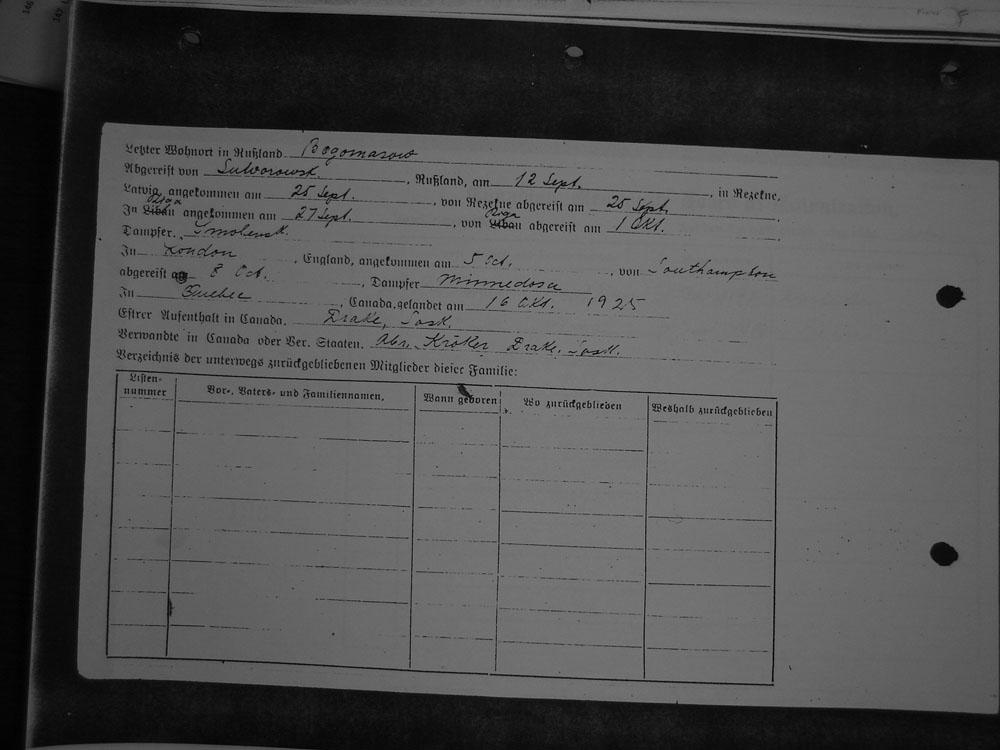 Letzter Wohnort in Rußland Bogomasow
Abgereist von Suworowsk, Rußland, am 12 Sept., in Rezekne,
Latvia, angekommen am 25 Sept., von Rezekne abgereist am 25 Sept.
In Riga Libau angekommen am 27 Sept., von Riga Libau abgereist am 1 Okt.
Dampfer. Smolensk.
In London, England, angekommen am 5 Oct., von Southampton
abgereist am 8 Oct., Dampfer Minnedosa
In Quebec, Canada, gelandet am 16 Okt. 1925
Estrer Aufenthalt in Canada. Drake, Sask.
Verwandte in Canada oder Ver. Staaten. Abr. Kröker Drake, Sask.
Verzeichnis der unterwegs zurückgebliebenen Mitglieder dieser Familie:
Listen-nummer
Vor-, Vaters- und Familiennamen,
Wann geboren
Wo zurückgeblieben
Weshalb zurückgeblieben